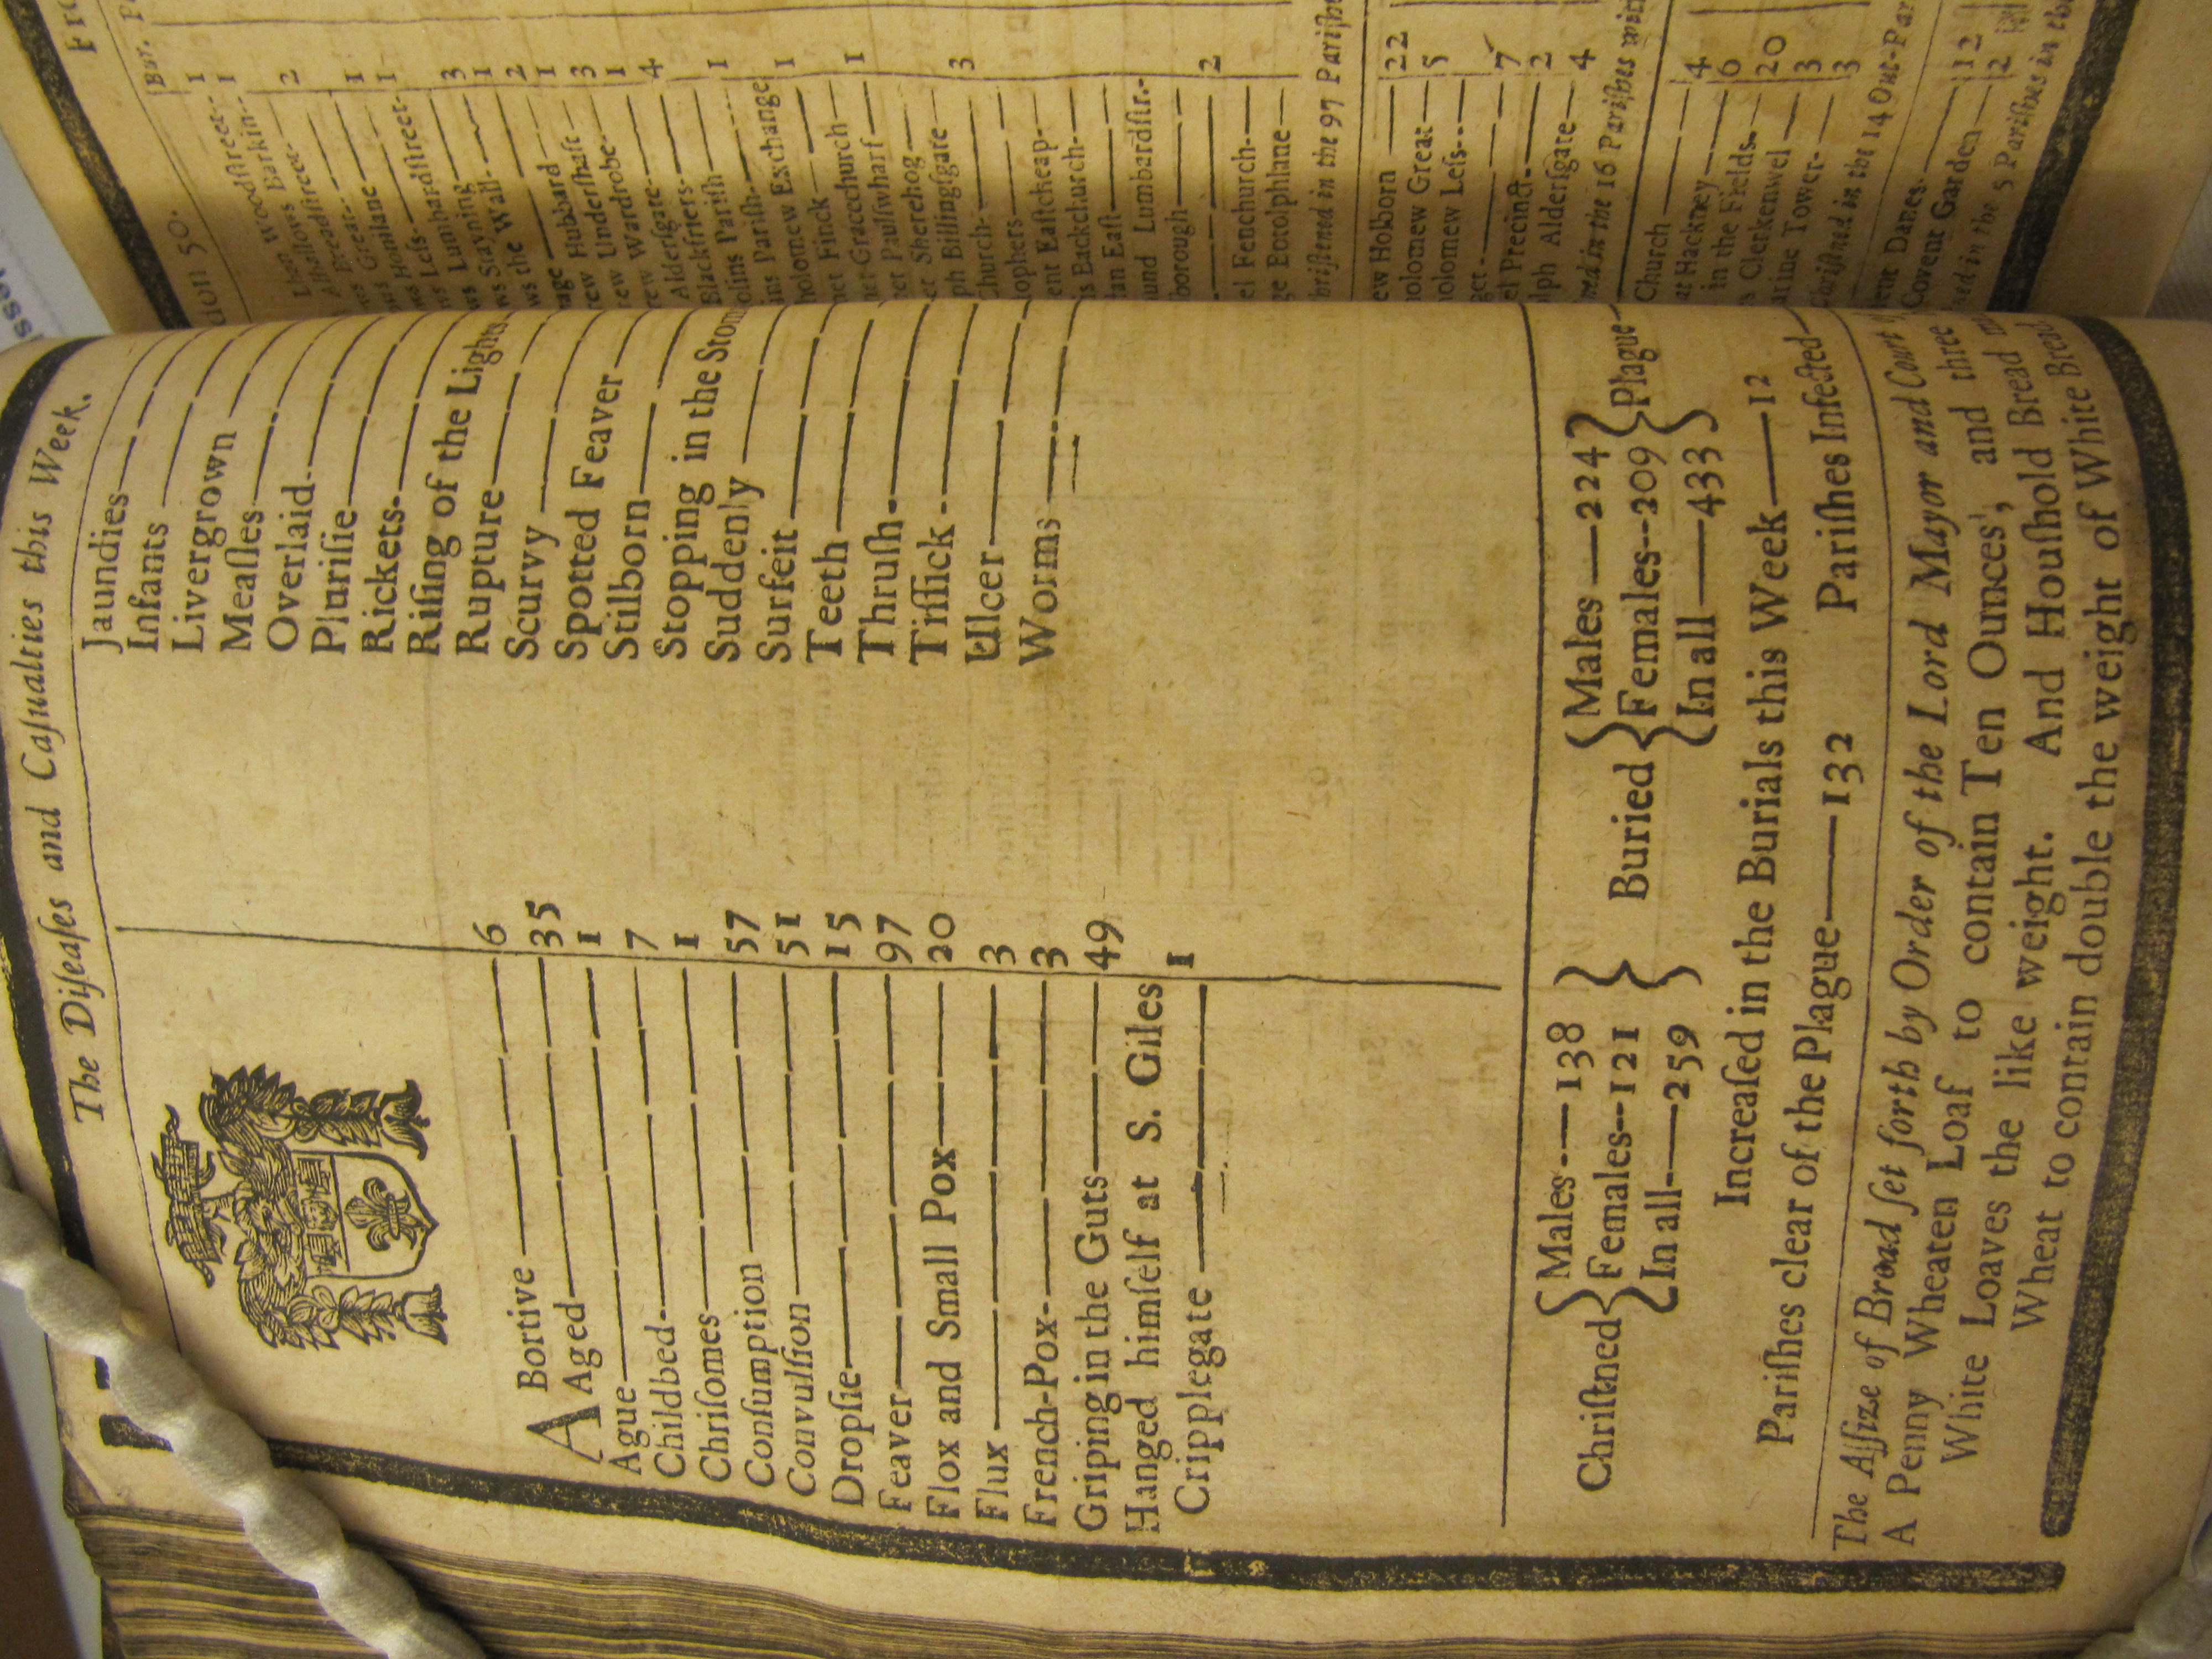 The Diſeaſes and Caſualties this Week.
A Bortive 6
Aged 35
Ague 1
Childbed 7
Chriſomes 1
Conſumption 57
Convulſion 51
Dropſie 15
Feaver 97
Flox and Small Pox 20
Flux 3
French-Pox 3
Griping in the Guts 49
Hanged himſelf at S. Giles
Cripplegate 1
Jaundies
Infants
Livergrown
Meaſles
Overlaid
Pluriſie
Rickets
Riſing of the Lights
Rupture
Scurvy
Spotted Feaver
Stilborn
Stopping in the Stom
Suddenly
Surfeit
Teeth
Thruſh
Tiſſick
Ulcer
Worms
Chriſtned
Males 138
Females 121
In all 259
Buried
Males 224
Females 209
In all 433
Plague
Increaſed in the Burials this Week 12
Pariſhes clear of the Plague 132 Pariſhes Infected
The Aſſize of Bread ſet forth by Order of the Lord Mayor and Court
A Penny Wheaten Loaf to contain Ten Ounces, and three
White Loaves the like weight. And Houſhold Bread
Wheat to contain double the weight of White Bread
Bur.
Woodſtreet 1
Barkin 1
Breadſtreet 2
Great 1
Honilane 1
Leſs
Lumbardſtreet 3
Stayning 1
the Wall 2
1
Hubbard 3
Underſhaft 1
Wardrobe 4
Alderſgate
Blackfriers 1
olins Pariſh
ins Pariſh 1
holomew Exchange
Finck 1
Gracechurch
Paulſwharf
Sherehog 3
ph Billingſgate
Church
ophers
ent Eaſtcheap
s Backchurch
tan Eaſt
und Lumbardſtr.
borough 2
el Fenchurch
ge Botolphlane
briſtened in the 97 Pariſhe
ew Holborn 22
olomew Great 5
olomew Leſs
get 7
el Precinct 2
lph Alderſgate 4
in the 16 Pariſhes
Church 4
at Hackney 6
in the Fields 20
s Clerkenwel 3
arine Tower 3
Chriſtned in the 14 Out-Par
ent Danes 12
Covent Garden 2
in the 5 Pariſhes in the